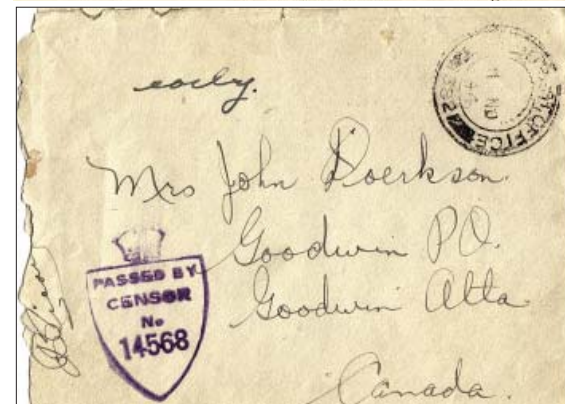 early.
POST OFFICE
Mrs John Doerkson
Goodwin P.O.
Goodwin Alta
Canada.
PASSED BY
CENSOR
No
14568